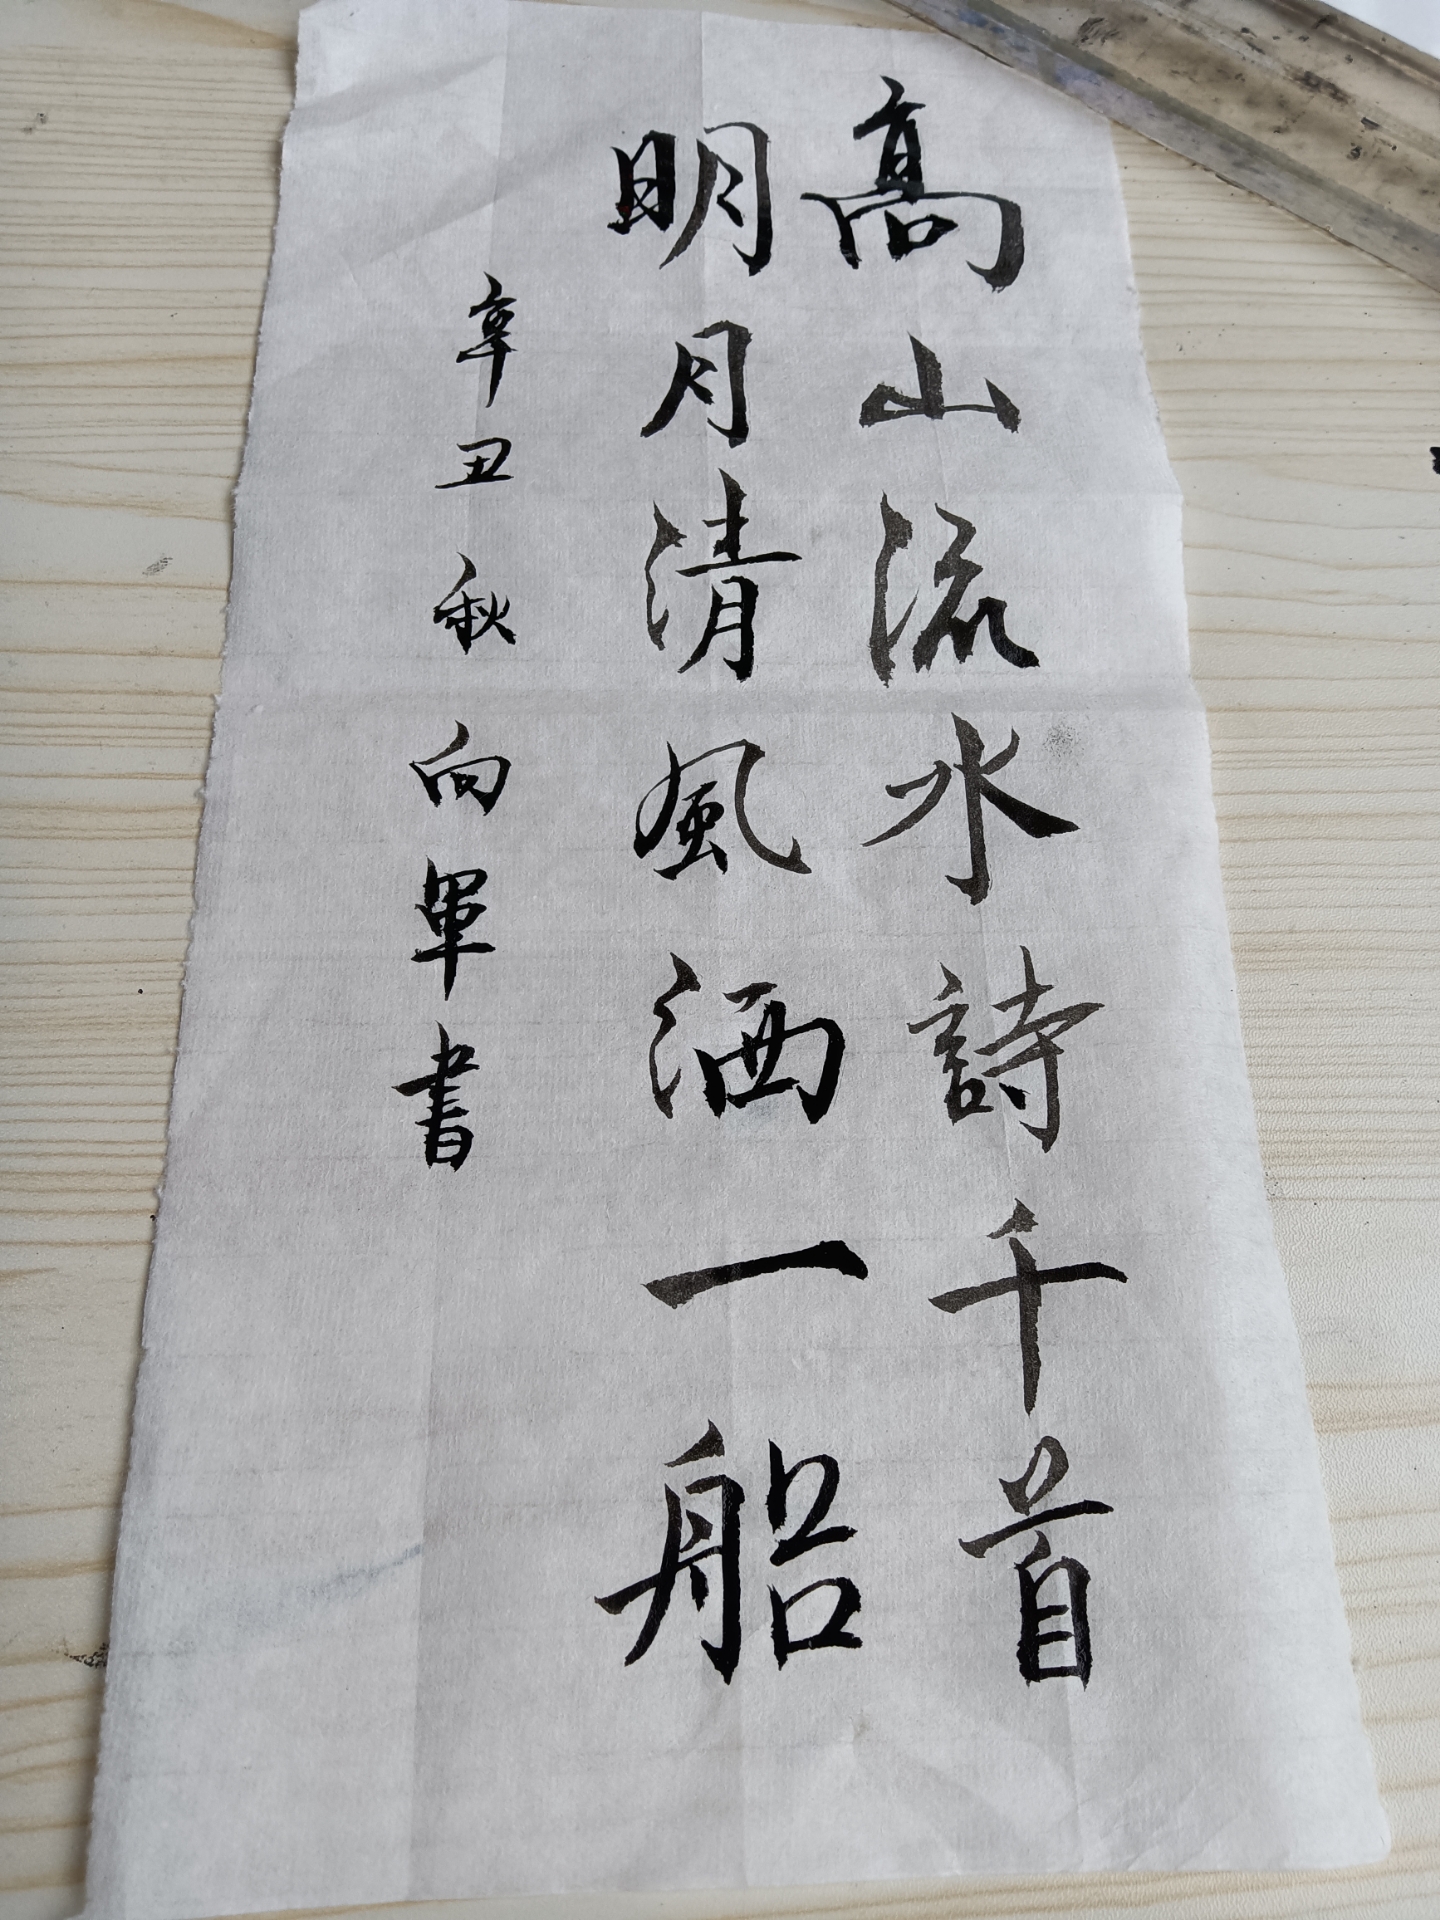 高山流水詩千首
明月清風洒一船
辛丑秋向軍書